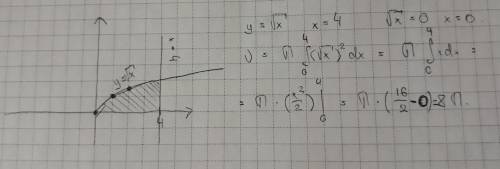 y = √x x = 4 √x = 0 x = 0
V = π ∫₀⁴ (√x)² dx = π ∫₀⁴ x dx =
= π · (x²/2) |₀⁴ = π · (16/2 - 0) = 8π.
y = √x
x = 4
4